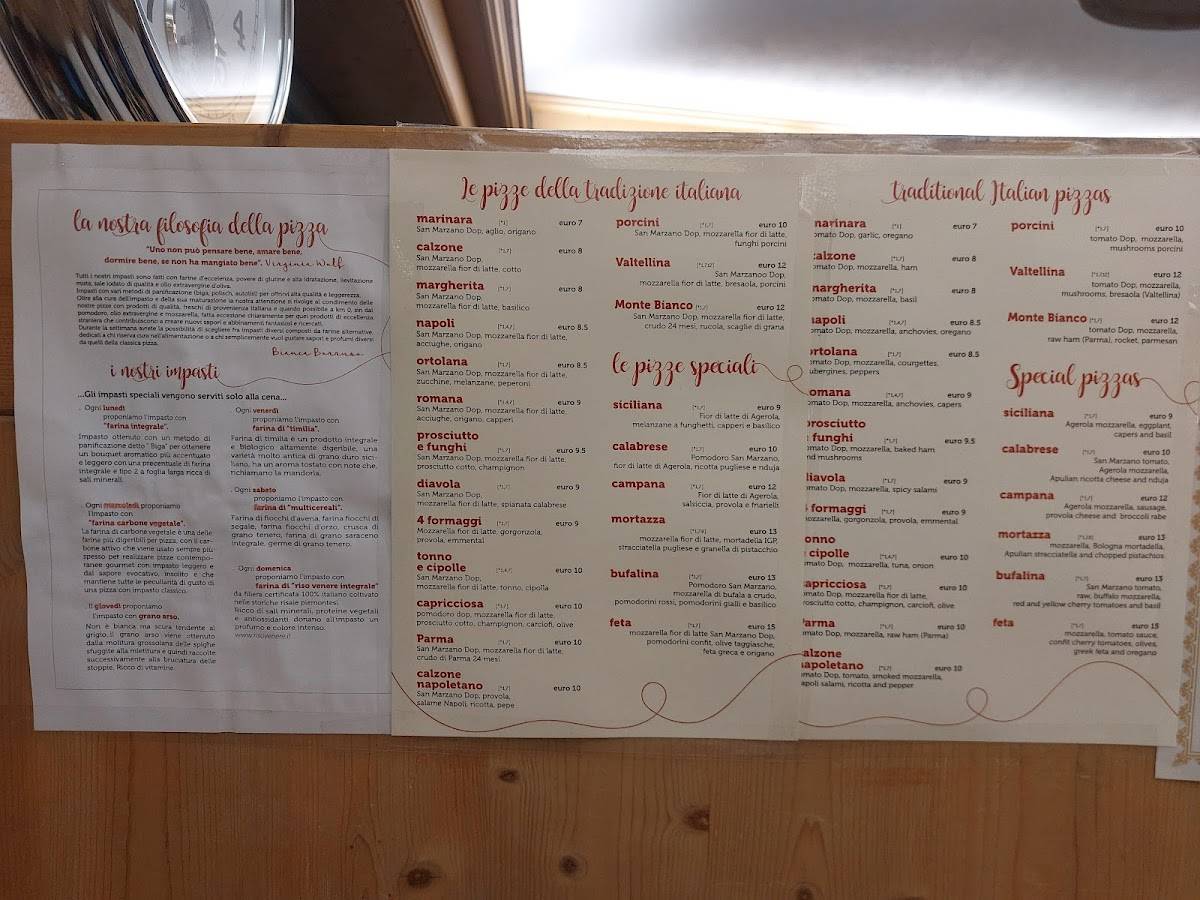 la nostra filosofia della pizza
"Uno non può pensare bene, amare bene,
dormire bene, se non ha mangiato bene". Virginia Wolf
Tutti i nostri impasti sono fatti con farine d'eccellenza, povere di glutine e alta idratazione, lievitazione
mista, sale iodato di qualità e olio extravergine d'oliva.
Impasti con vari metodi di panificazione (biga, poolisch, autolisi) per offrirvi alta qualità e leggerezza.
Oltre alla cura dell'impasto e della sua maturazione la nostra attenzione si rivolge al condimento delle
nostre pizze con prodotti di qualità, freschi di provenienza italiana e quando possibile a km 0, sin dal
pomodoro, olio extravergine e mozzarella, fatta eccezione chiaramente per quei prodotti di eccellenza
straniera che contribuiscono a creare nuovi sapori e abbinamenti fantasiosi e ricercati.
Durante la settimana avrete la possibilità di scegliere fra impasti diversi composti da farine alternative,
dedicati a chi ricerca cura nell'alimentazione o a chi semplicemente vuol gustare sapori e profumi diversi
da quelli della classica pizza.
i nostri impasti
...Gli impasti speciali vengono serviti solo alla cena...
. Ogni lunedì
proponiamo l'impasto con
"farina integrale".
Impasto ottenuto con un metodo di
panificazione detto " Biga" per ottenere
un bouquet aromatico più accentuato
e leggero con una precentuale di farina
integrale e tipo 2 a foglia larga ricca di
sali minerali.
. Ogni mercoledì proponiamo
l'impasto con
"farina carbone vegetale".
La farina di carbone vegetale è una delle
farine più digeribili per pizza, con il car-
bone attivo che viene usato sempre più
spesso per realizzare pizze contempo-
ranee gourmet con impasto leggero e
dal sapore evocativo, insolito e che
mantiene tutte le peculiarità di gusto di
una pizza con impasto classico.
. Il giovedì proponiamo
l'impasto con grano arso,
Non è bianca ma scura tendente al
grigio..Il grano arso viene ottenuto
dalla molitura grossolana delle spighe
sfuggite alla mietitura e quindi raccolte
successivamente alla brucatura delle
stoppie. Ricco di vitamine.
. Ogni venerdì
proponiamo l'impasto con
farina di "timilia".
Farina di timilia è un prodotto integrale
e biologico altamente digeribile, una
varietà molto antica di grano duro sici-
liano, ha un aroma tostato con note che,
richiamano la mandorla.
. Ogni sabato
proponiamo l'impasto con
farina di "multicereali".
Farina di fiocchi d'avena, farina fiocchi di
segale, farina fiocchi d'orzo, crusca di
grano tenero, farina di grano saraceno
integrale, germe di grano tenero.
. Ogni domenica
proponiamo l'impasto con
farina di "riso venere integrale"
da filiera certificata 100% italiano coltivato
nelle storiche risaie piemontesi.
Ricco di sali minerali, proteine vegetali
e antiossidanti donano all'impasto un
profumo e colore intenso.
www.risovenere.it
le pizze della tradizione italiana
marinara [*1] euro 7
San Marzano Dop, aglio, origano
calzone [*1,7] euro 8
San Marzano Dop,
mozzarella fior di latte, cotto
margherita [*1,7] euro 8
San Marzano Dop,
mozzarella fior di latte, basilico
napoli [*1,4,7] euro 8.5
San Marzano Dop, mozzarella fior di latte,
acciughe, origano
ortolana [*1,7] euro 8.5
San Marzano Dop, mozzarella fior di latte,
zucchine, melanzane, peperoni
romana [*1,4,7] euro 9
San Marzano Dop, mozzarella fior di latte,
acciughe, origano, capperi
prosciutto
e funghi [*1,7] euro 9.5
San Marzano Dop, mozzarella fior di latte,
prosciutto cotto, champignon
diavola [*1,7] euro 9
San Marzano Dop,
mozzarella fior di latte, spianata calabrese
4 formaggi [*1,7] euro 9
Mozzarella fior di latte, gorgonzola,
provola, emmental
tonno
e cipolle [*1,4,7] euro 10
San Marzano Dop,
mozzarella fior di latte, tonno, cipolla
capricciosa [*1,7] euro 10
pomodoro dop, mozzarella fior di latte,
prosciutto cotto, champignon, carciofi, olive
Parma [*1,7] euro 10
San Marzano Dop, mozzarella fior di latte,
crudo di Parma 24 mesi
calzone
napoletano [*1,7] euro 10
San Marzano Dop, provola,
salame Napoli, ricotta, pepe
porcini [*1,7] euro 10
San Marzano Dop, mozzarella fior di latte,
funghi porcini
Valtellina [*1,7,12] euro 12
San Marzanoo Dop,
mozzarella fior di latte, bresaola, porcini
Monte Bianco [*1,7] euro 12
San Marzano Dop, mozzarella fior di latte,
crudo 24 mesi, rucola, scaglie di grana
le pizze speciali
siciliana [*1,7] euro 9
Fior di latte di Agerola,
melanzane a funghetti, capperi e basilico
calabrese [*1,7] euro 10
Pomodoro San Marzano,
fior di latte di Agerola, ricotta pugliese e nduja
campana [*1,7] euro 12
Fior di latte di Agerola,
salsiccia, provola e friarielli
mortazza
[*1,7,8] euro 13
mozzarella fior di latte, mortadella IGP,
stracciatella pugliese e granella di pistacchio
bufalina [*1,7] euro 13
Pomodoro San Marzano,
mozzarella di bufala a crudo,
pomodorini rossi, pomodorini gialli e basilico
feta [*1,7] euro 15
mozzarella fior di latte San Marzano Dop,
pomodorini confit, olive taggiasche,
feta greca e origano
traditional Italian pizzas
marinara [*1] euro 7
omato Dop, garlic, oregano
calzone [*1,7] euro 8
omato Dop, mozzarella, ham
margherita [*1,7] euro 8
omato Dop, mozzarella, basil
napoli [*1,4,7] euro 8.5
omato Dop, mozzarella, anchovies, oregano
ortolana [*1,7] euro 8.5
omato Dop, mozzarella, courgettes,
ubergines, peppers
omana [*1,4,7] euro 9
omato Dop, mozzarella, anchovies, capers
prosciutto
e funghi [*1,7] euro 9.5
omato Dop, mozzarella, baked ham
nd mushrooms
diavola [*1,7] euro 9
omato Dop, mozzarella, spicy salami
4 formaggi [*1,7] euro 9
mozzarella, gorgonzola, provola, emmental
onno
e cipolle [*1,4,7] euro 10
omato Dop, mozzarella, tuna, onion
capricciosa [*1,7] euro 10
omato Dop, mozzarella fior di latte,
rosciutto cotto, champignon, carciofi, olive
Parma [*1,7] euro 10
omato Dop, mozzarella, raw ham (Parma)
calzone
napoletano [*1,7] euro 10
omato Dop, tomato, smoked mozzarella,
apoli salami, ricotta and pepper
porcini [*1,7] euro 10
tomato Dop, mozzarella,
mushrooms porcini
Valtellina [*1,7,12] euro 12
tomato Dop, mozzarella,
mushrooms, bresaola (Valtellina)
Monte Bianco [*1,7] euro 12
tomato Dop, mozzarella,
raw ham (Parma), rocket, parmesan
Special pizzas
siciliana [*1,7] euro 9
Agerola mozzarella, eggplant,
capers and basil
calabrese [*1,7] euro 10
San Marzano tomato,
Agerola mozzarella,
Apulian ricotta cheese and nduja
campana [*1,7] euro 12
Agerola mozzarella, sausage,
provola cheese and broccoli rabe
mortazza [*1,7,8] euro 13
mozzarella, Bologna mortadella,
Apulian stracciatella and chopped pistachios
bufalina [*1,7] euro 13
San Marzano tomato,
raw, buffalo mozzarella,
red and yellow cherry tomatoes and basil
feta [*1,7] euro 15
mozzarella, tomato sauce,
confit cherry tomatoes, olives,
greek feta and oregano